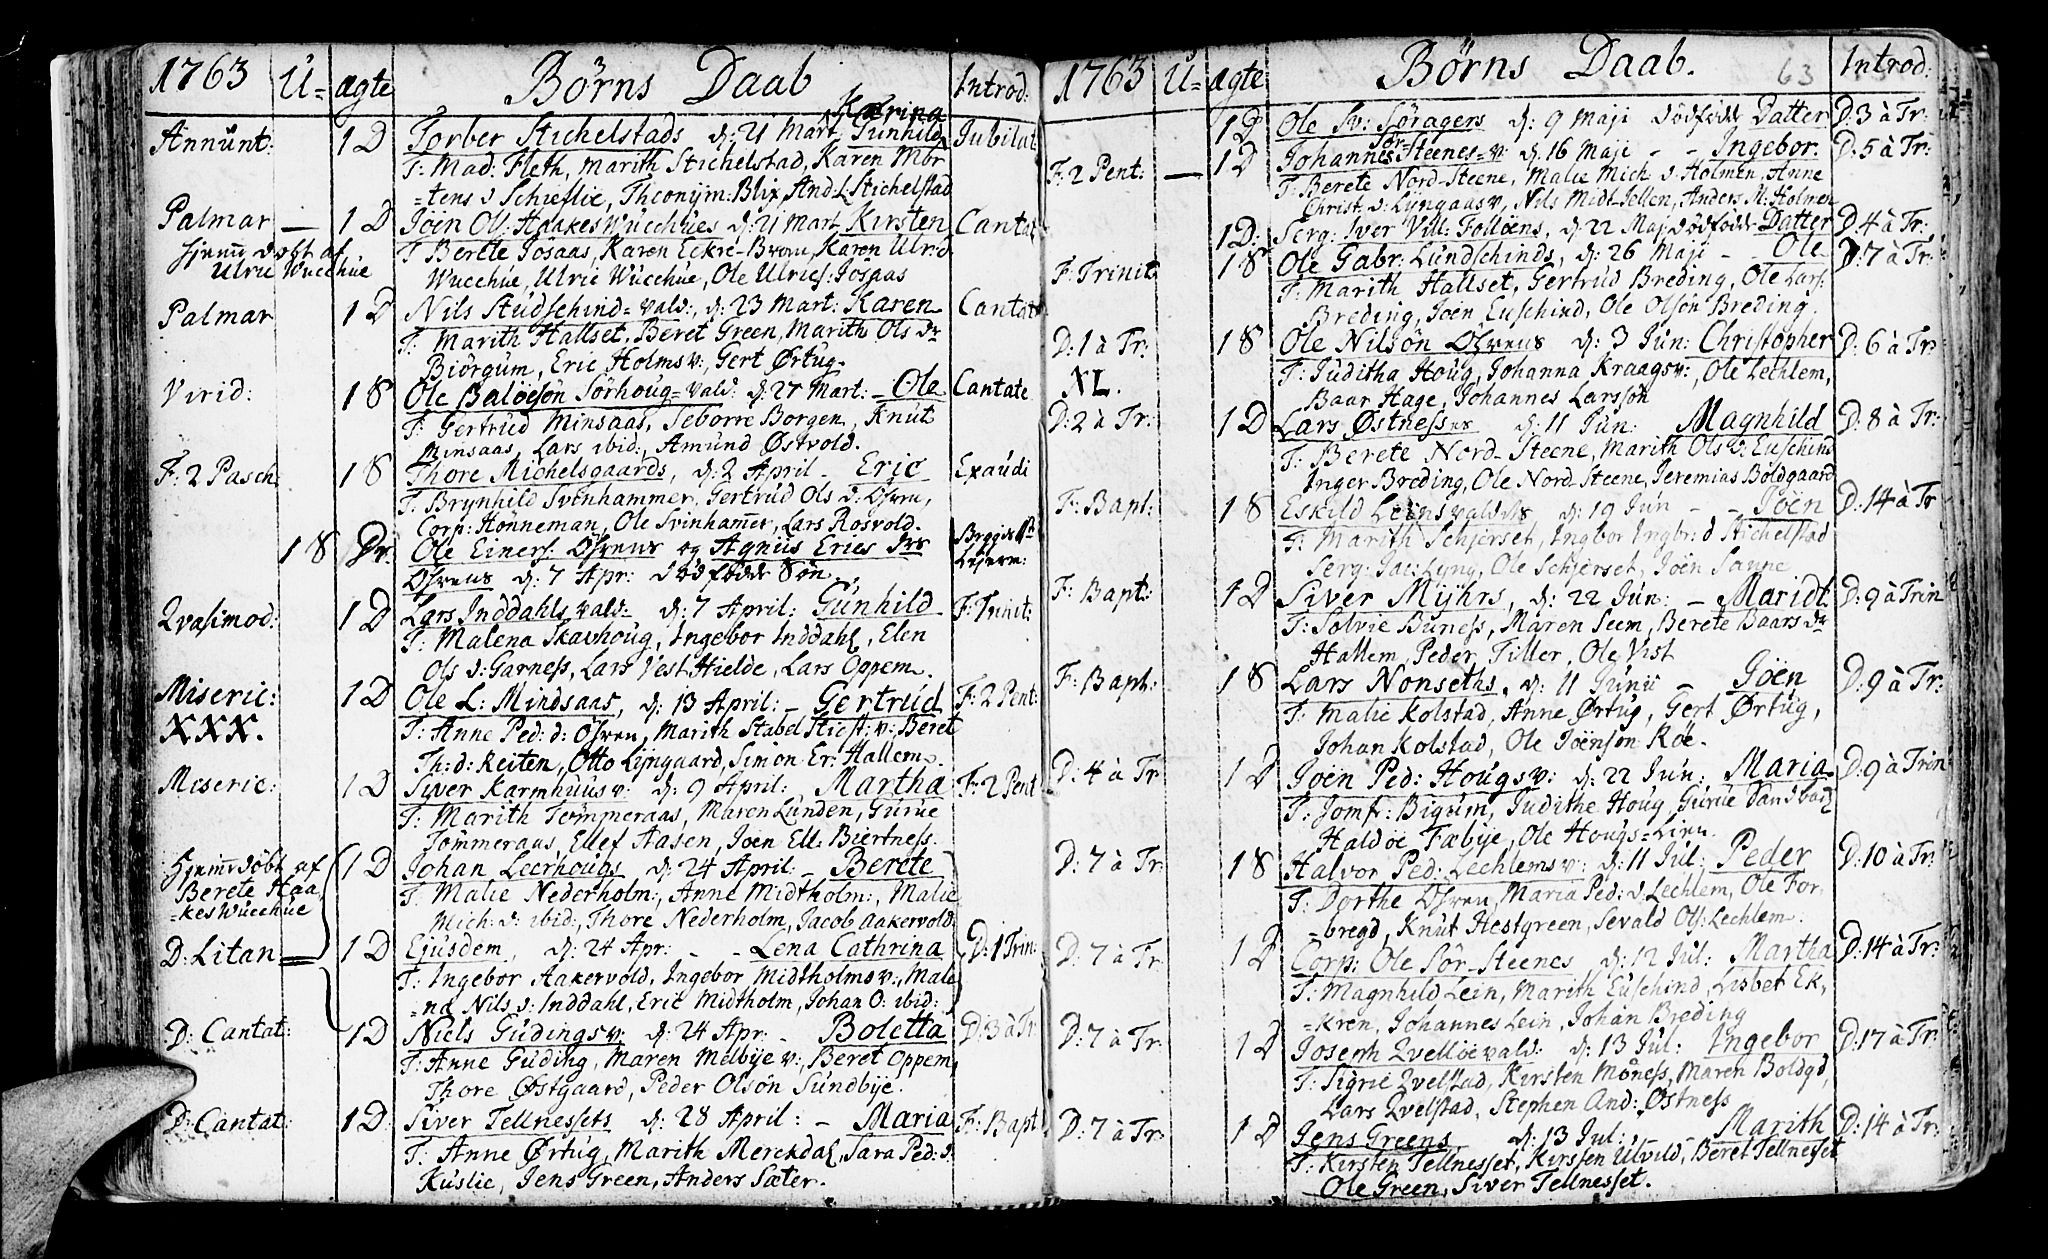 1763 U= ægte Børns Daab Introd:
Catrina
Annunt: 1 D Torber Stichelstads d: 21 Mart. Gunhild Jubilat
T: Mad: Fleth, Marith Stichelstad, Karen Mor
=tens d Schieflie, Theonijm: Blix, And L Stichelstad
Palmar — 1 D Joen Ol: Haakes Wucchues d: 21 Mart Kirsten Cantat
hjemdøbt af T Berete Josaas, Karen Eckre-Brom, Karen Ulr: d.
Ulric Wucchue Wucchue, Ulric Wucchue, Ole Ulrics: Josaas
Palmar 1 D Nils Studschind=vald:, d: 23 Mart: Karen Cantat
T: Marith Hallset, Beret Green, Marith Ols dr
Biörgum, Eric Holms v:, Gert Ørtug.
Virid: 1 8 Ole Baloesön Sörhoug=vald: d: 27 Mart: – Ole Cantate
T: Gertrud Minsaas, Seborre Borgen, Knut
Minsaas, Lars ibid:, Amund Østvold.
F: 2 Pasch 1 8 Thore Michelsgaards, d: 2 April – Eric Exaudi
T: Brynhild Svinhammer, Gertrud Ols d: Ofven,
Corp: Honneman, Ole Svinhamer, Lars Rosvold.
1 8 Dr. Ole Einers: Ofvens og Agnus Erics drs
Lejerm:
Ofvens d: 7 Apr: dødfödde Søn.
Qvasimod: 1 D Lars Inddahls vald: d: 7 April: Gunhild F: Trinit:
T: Malena Skavhoug, Ingebor Inddahl, Elen
Ols d: Garness, Lars Vest Hielde, Lars Oppem.
Miseric: 1 D Ole L: Mindsaas, d: 13 April: – Gertrud F: 2 Pent:
XXX. T: Anne Ped: d: Ofven, Marith Stabel Stiefst: v: Beret
Th: d: Reiten, Otto Lyngaard, Simon Er: Hallem.
Miseric: 1 D Siver Karmhuus v: d: 9 April: Martha F: 2 Pent
T: Marith Tömmeraas, Maren Lunden, Gurue
Tömmeraas, Ellef Aasen, Joen Ell: Biertness.
Hjemdöbt af 1 D Johan Leerhougs d: 24 April – Berete
Berete Haa T: Malie Nederholm:, Anne Midtholm:, Malie
=kes Wucchue Mich: d: ibid:, Thore Nederholm, Jacob Aakervold:
D: Litan 1 D Ejusdem, d: 24 Apr: – – Lena Cathrina D: 1 Trin:
T: Ingebor Aakervold, Ingebor Midtholms v:, Male
=na Nils d: Inddahl, Eric Midtholm, Johan O: ibid:
D: Cantat: 1 D Niels Gudings v: d: 24 Apr. – Boletta D: 3 à Tr
T: Anne Guding, Maren Melbye v:, Beret Oppem,
Thore Østgaard, Peder Olsön Sundbye.
D: Cantat: 1 D Siver Tellnessets d: 28 April: – Maria F: Bapt
T: Anne Ørtug, Marith Merckdal, Sara Ped: d:
Kuslie, Jens Green, Anders Sæter.
1763 U= ægte Børns Daab. 63 Introd:
1 D Ole Sv: Söragers d: 9 Maji dödfödde Datter D: 3 à Tr:
Sör
F: 2 Pent: — 1 D Johannes Steenes=v: d: 16 Maji – – Ingebor. D: 5 à Tr:
T: Berete Nord-Steene, Malie Mich: d: Holmen, Anne
Christ: d: Lyngaas v, Nils Midt-Jellen, Anders M: Holmen
1 D: Serg: Iver Vill: Folloens, d: 22 Maj dödfödde Datter D: 4 à Tr:
F: Trinit: 1 8 Ole Gabr: Lundschinds, d: 26 Maji – – Ole D: 7 à Tr:
T: Marith Hallset, Gertrud Breding, Ole Lars:
Breding, Joen Euschind, Ole Olsön Breding.
D: 1 à Tr: 1 8 Ole Nilsön Ofvens d: 3 Jun: Christopher D: 6 à Tr:
XL. T: Juditha Houg, Johanna Kraags v:, Ole Lechlem,
Baar Hage, Johannes Larssön
D: 2 à Tr: 1 D Lars Østness d: 11 Jun: Magnhild D: 8 à Tr:
T: Berete Nord-Steene, Marith Ols d: Euschind
Inger Breding, Ole Nord-Steene, Jeremias Boldgaard
F: Bapt: 1 8 Eskild Leins valds d: 19 Jun – – Joen D: 14 à Tr
T: Marith Schjerset, Ingbor Ingbr: d Stichelstad
Serg: Jac: Lyng, Ole Schjerset, Joen Sanne
F: Bapt: 1 D Siver Mijhrs, d: 22 Jun: – Maridt. D: 9 à Trin
T: Solvie Buness, Maren Seem, Berete Baars dr
Hallem, Peder Tiller, Ole Vist
F: Bapt: 1 8 Lars Nonseths, d: 11 Junii – Joen D: 9 à Tr:
T: Malie Kolstad, Anne Ørtug, Gert Ørtug,
Johan Kolstad, Ole Joenson Röe.
D: 4 à Tr 1 D Joen Ped: Hougs v: d: 22 Jun: Maria. D: 9 à Trin
T: Jomfr: Bigum, Judithe Houg, Gurue Sandbad
Haldoe Fæbye, Ole Hougs=Lien.
D: 7 à Tr 1 8 Halvor Ped: Lechlems v: d: 11 Jul: Peder D: 10 à Tr:
T: Dorthe Ofven, Maria Ped: d: Lechlem, Ole For
=bregd, Knut Hestgreen, Sevald Ols: Lechlem.
D: 7 à Tr 1 D Corp: Ole Sör-Steenes d: 12 Jul: Martha D: 14 à Tr:
T: Magnhild Lein, Marith Euschind, Lisbet Ek,
=kren, Johannes Lein, Johan Breding
D: 7 à Tr: 1 D Joseph Qvelloe vald: d: 13 Jul: Ingebor D: 17 à Tr:
T: Sigrie Qvelstad, Kirsten Møness, Maren Boldgd,
Lars Qvelstad, Stephen And: Østness
D: 7 à Tr: 1 D Jens Greens d: 13 Jul: Marith D: 14 à Tr:
T: Kirsten Tellnesset, Kirsten Ulvild, Beret Tellnesset
Ole Green, Siver Tellnesset.